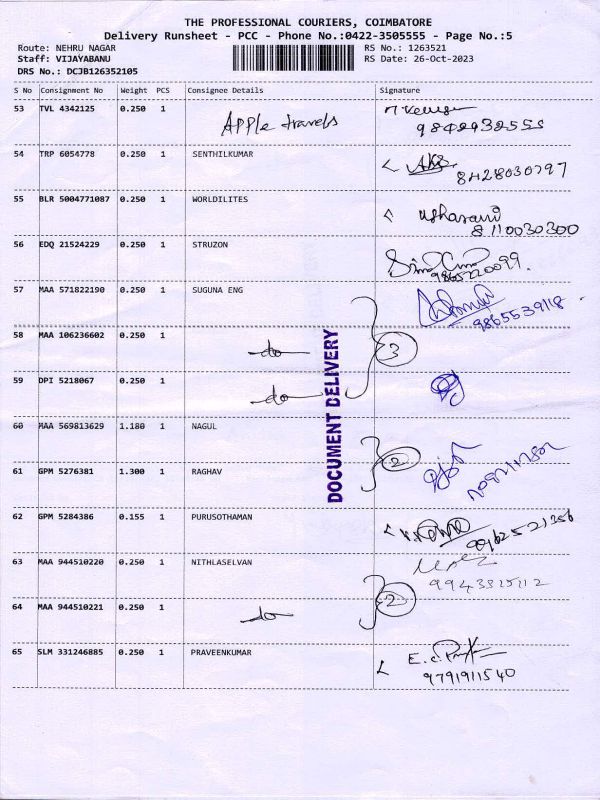 THE PROFESSIONAL COURIERS, COIMBATORE
Delivery Runsheet - PCC - Phone No.:0422-3505555 - Page No.:5
Route: NEHRU NAGAR
RS No.: 1263521
Staff: VIJAYABANU
RS Date: 26-Oct-2023
DRS No.: DCJB126352105
S No Consignment No Weight PCS Consignee Details Signature
53 TVL 4342125 0.250 1 Apple travels
9842932555
54 TRP 6054778 0.250 1 SENTHILKUMAR
8428030797
55 BLR 5004771087 0.250 1 WORLDILITES
8110030300
56 EDQ 21524229 0.250 1 STRUZON
9865220099.
57 MAA 571822190 0.250 1 SUGUNA ENG
9865539118
58 MAA 106236602 0.250 1 do 3
59 DPI 5218067 0.250 1 do
DOCUMENT DELIVERY
60 MAA 569813629 1.180 1 NAGUL
2
61 GPM 5276381 1.300 1 RAGHAV
62 GPM 5284386 0.155 1 PURUSOTHAMAN
63 MAA 944510220 0.250 1 NITHLASELVAN
64 MAA 944510221 0.250 1 do 2
65 SLM 331246885 0.250 1 PRAVEENKUMAR
9791911540